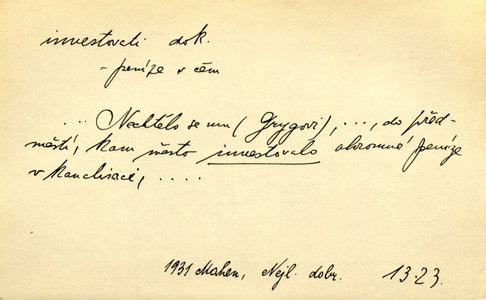 investovati dok.
- peníze v čem
... Nechtělo se mu (Grygovi), ..., do před-
městí, kam město investovalo ohromné peníze
v kanalisaci, ....
1931 Mahen, Nejl. dobr. 13.23.